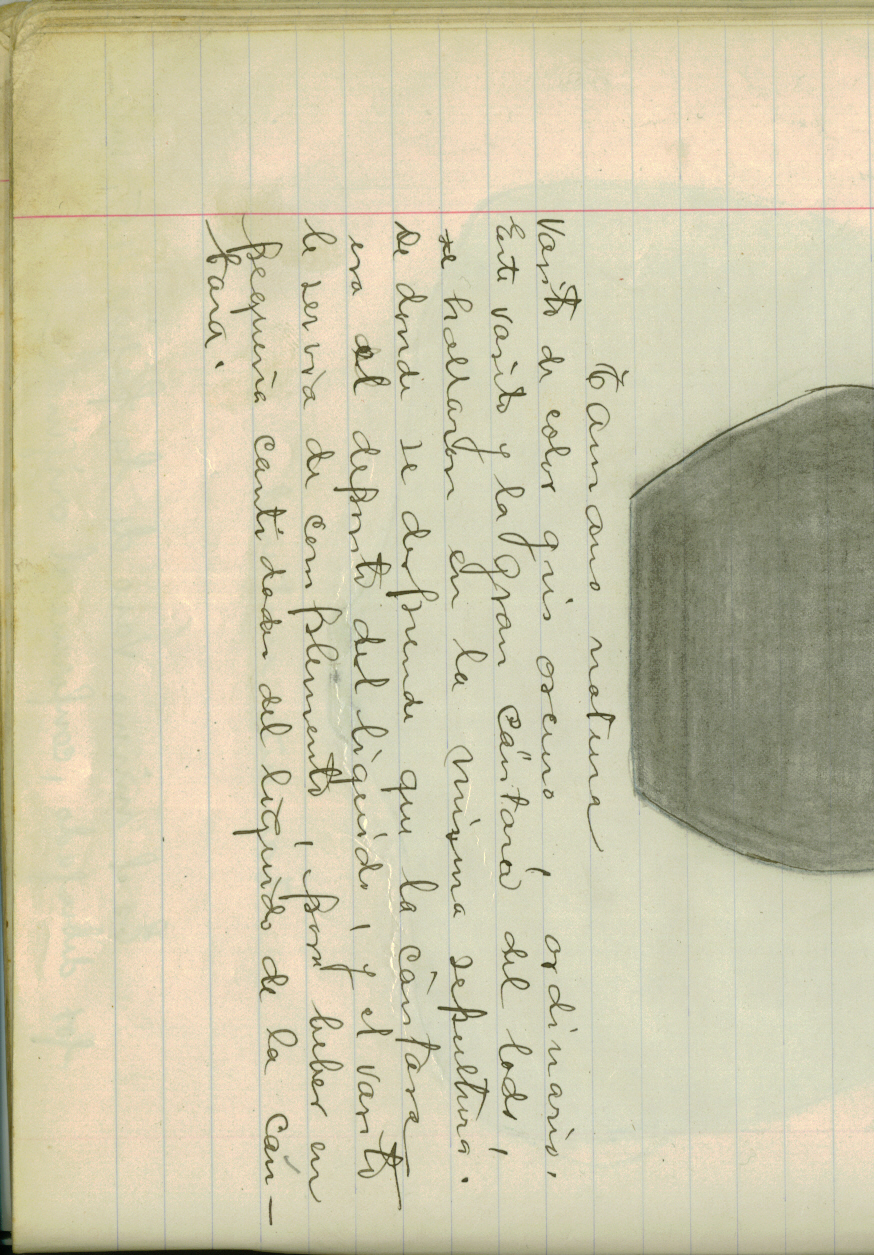 Tamano natura
Vasito de color gris oscuro, ordinario,
Este vasito y la gran cántara del lado,
se hallaron en la misma sepultura.
De donde se desprende que la cántara
era el deposito del liquido, y el vasito
le servia de complemento, para beber en
pequeña cantidades del liquido de la cán-
tara.